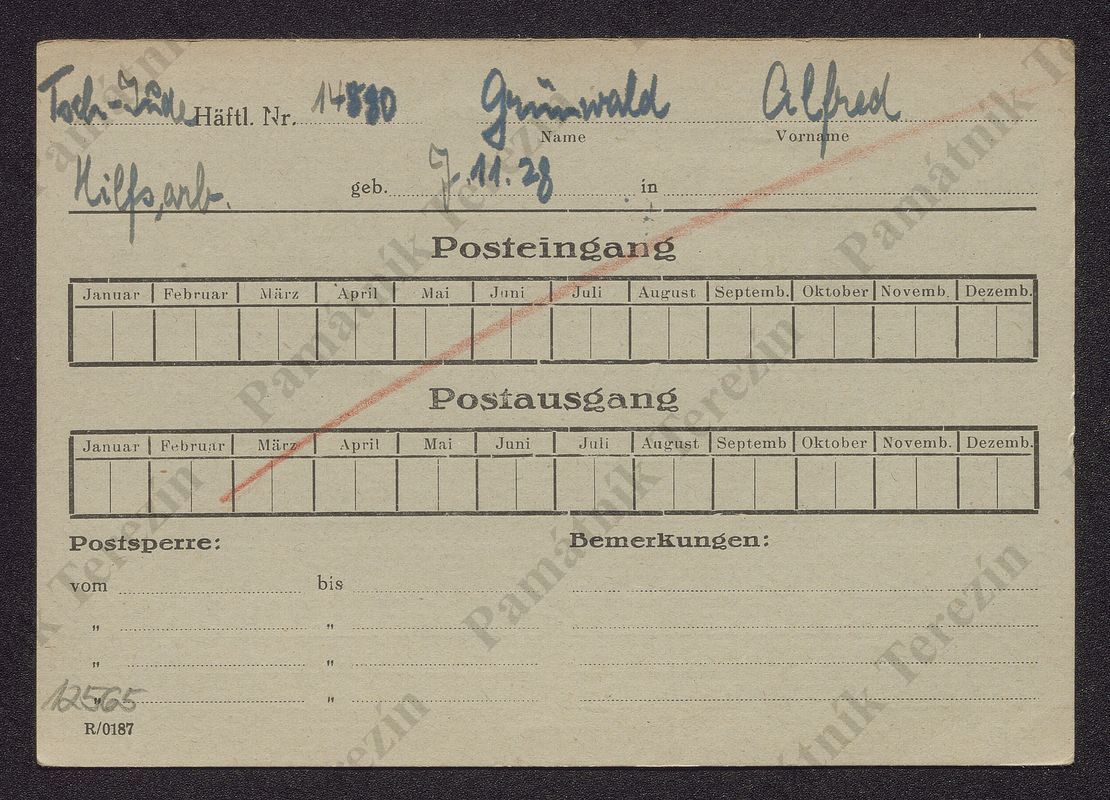 Tsch-Jude Häftl. Nr. 14880 Grünwald Alfred
Name Vorname
Hilfsarb. geb. 7.11.28 in
Posteingang
Januar Februar März April Mai Juni Juli August Septemb. Oktober Novemb. Dezemb.
Postausgang
Januar Februar März April Mai Juni Juli August Septemb Oktober Novemb. Dezemb.
Postsperre: Bemerkungen:
vom bis
" "
" "
" "
12565
R/0187
Památník Terezín